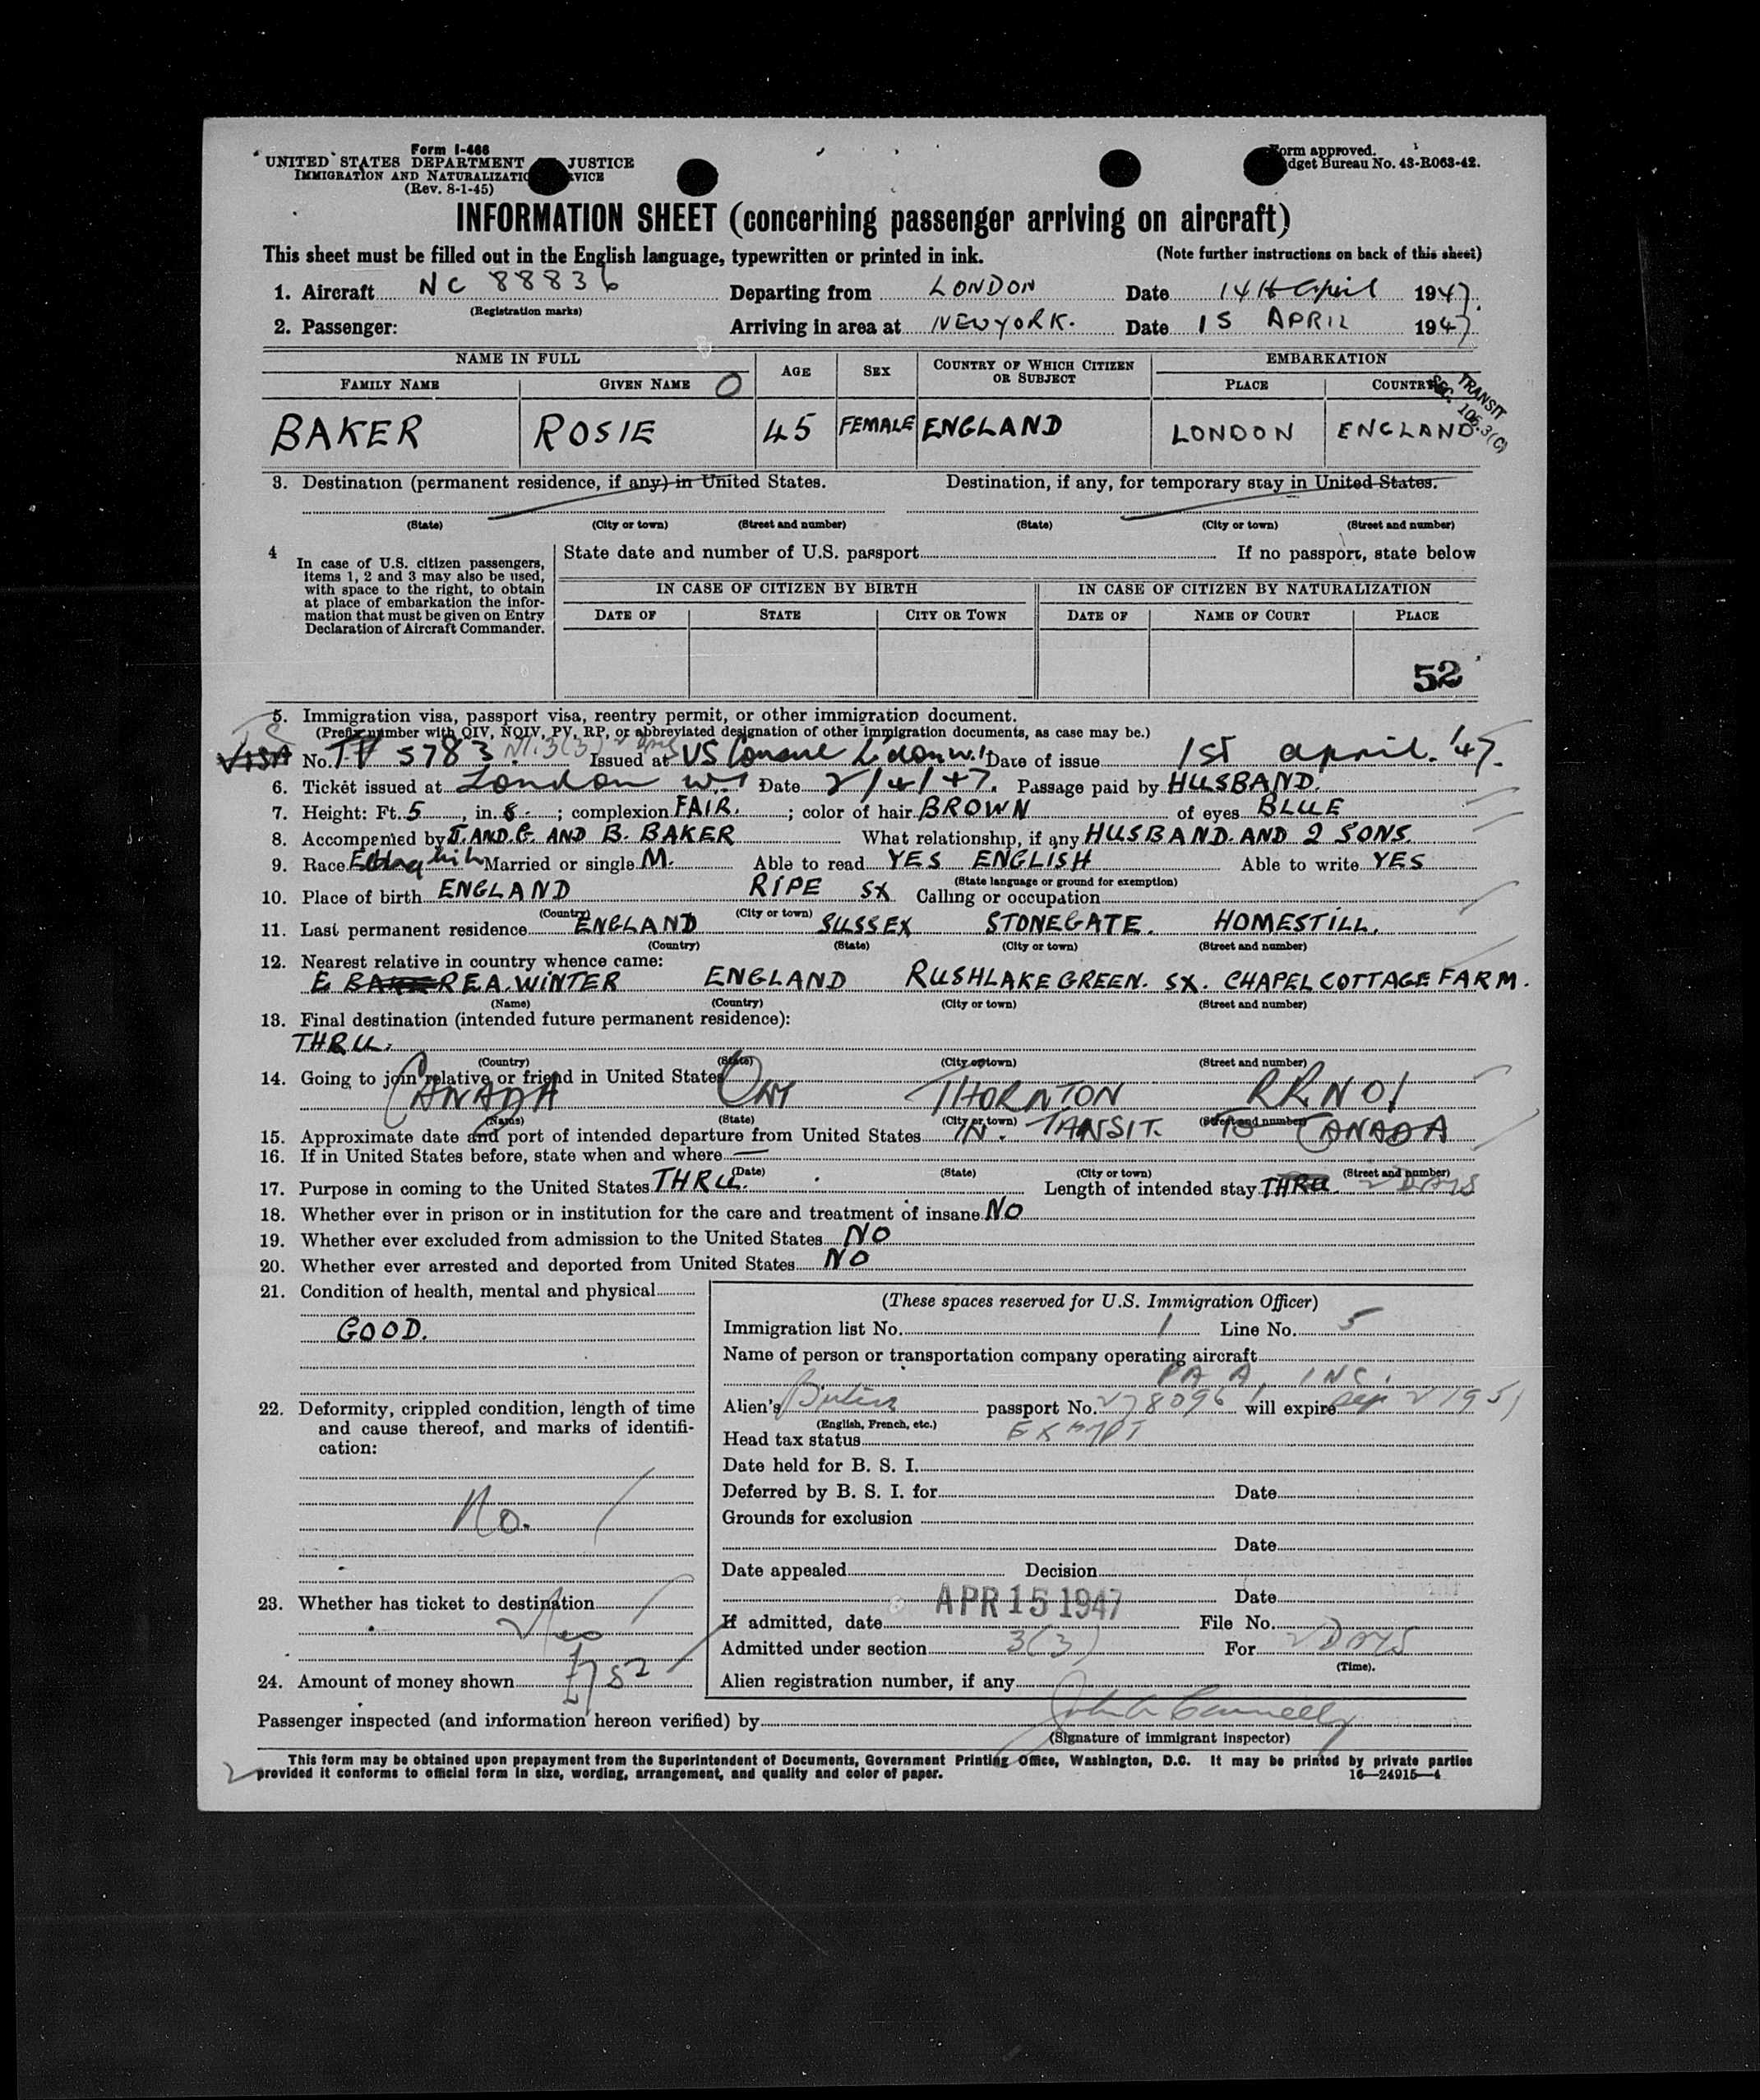 Form I-466
UNITED STATES DEPARTMENT JUSTICE
IMMIGRATION AND NATURALIZATIO RVICE
(Rev. 8-1-45)
orm approved.
dget Bureau No. 43-R063-42.
INFORMATION SHEET (concerning passenger arriving on aircraft)
This sheet must be filled out in the English language, typewritten or printed in ink. (Note further instructions on back of this sheet)
1. Aircraft NC 88836 Departing from LONDON Date 14th April 1947.
(Registration marks)
2. Passenger: Arriving in area at NEW YORK. Date 15 APRIL 1947
NAME IN FULL AGE SEX COUNTRY OF WHICH CITIZEN OR SUBJECT EMBARKATION
FAMILY NAME GIVEN NAME O PLACE COUNTRY
TRANSIT
SEC. 106.3(C)
BAKER ROSIE 45 FEMALE ENGLAND LONDON ENGLAND
3. Destination (permanent residence, if any) in United States. Destination, if any, for temporary stay in United States.
(State) (City or town) (Street and number) (State) (City or town) (Street and number)
4 In case of U.S. citizen passengers, items 1, 2 and 3 may also be used, with space to the right, to obtain at place of embarkation the information that must be given on Entry Declaration of Aircraft Commander.
State date and number of U.S. passport If no passport, state below
IN CASE OF CITIZEN BY BIRTH IN CASE OF CITIZEN BY NATURALIZATION
DATE OF STATE CITY OR TOWN DATE OF NAME OF COURT PLACE
52
5. Immigration visa, passport visa, reentry permit, or other immigration document.
(Prefix number with QIV, NQIV, PV, RP, or abbreviated designation of other immigration documents, as case may be.)
VISA No. TV 5783 Issued at US Consul London W.1 Date of issue 1ST april. '47.
6. Ticket issued at London W1 Date 2/4/47. Passage paid by HUSBAND.
7. Height: Ft. 5, in. 8; complexion FAIR.; color of hair BROWN of eyes BLUE
8. Accompanied by J. AND. G. AND B. BAKER What relationship, if any HUSBAND. AND 2 SONS.
9. Race English Married or single M. Able to read YES ENGLISH Able to write YES
(State language or ground for exemption)
10. Place of birth ENGLAND RIPE SX Calling or occupation
(Country) (City or town)
11. Last permanent residence ENGLAND SUSSEX STONEGATE. HOMESTILL.
(Country) (State) (City or town) (Street and number)
12. Nearest relative in country whence came:
E BAKER E.A. WINTER ENGLAND RUSHLAKE GREEN. SX. CHAPEL COTTAGE FARM.
(Name) (Country) (City or town) (Street and number)
13. Final destination (intended future permanent residence):
THRU.
(Country) (State) (City or town) (Street and number)
14. Going to join relative or friend in United States
CANADA ONT THORNTON RR NO 1
(Name) (State) (City or town) (Street and number)
15. Approximate date and port of intended departure from United States IN. TANSIT. TO CANADA
16. If in United States before, state when and where —
(Date) (State) (City or town) (Street and number)
17. Purpose in coming to the United States THRU. Length of intended stay THRU. 2 DAYS
18. Whether ever in prison or in institution for the care and treatment of insane NO
19. Whether ever excluded from admission to the United States NO
20. Whether ever arrested and deported from United States NO
21. Condition of health, mental and physical
GOOD.
22. Deformity, crippled condition, length of time and cause thereof, and marks of identification:
No.
23. Whether has ticket to destination
Yes
24. Amount of money shown
(These spaces reserved for U.S. Immigration Officer)
Immigration list No. 1 Line No. 5
Name of person or transportation company operating aircraft
P A A, INC.
Alien's British passport No. 278096 will expire Sep 2 1951
(English, French, etc.)
Head tax status EXMPT
Date held for B. S. I.
Deferred by B. S. I. for Date
Grounds for exclusion
Date
Date appealed Decision
Date
If admitted, date APR 15 1947 File No.
Admitted under section 3(3) For 2 DAYS
(Time).
Alien registration number, if any
Passenger inspected (and information hereon verified) by
(Signature of immigrant inspector)
This form may be obtained upon prepayment from the Superintendent of Documents, Government Printing Office, Washington, D.C. It may be printed by private parties
provided it conforms to official form in size, wording, arrangement, and quality and color of paper. 16—24915—4